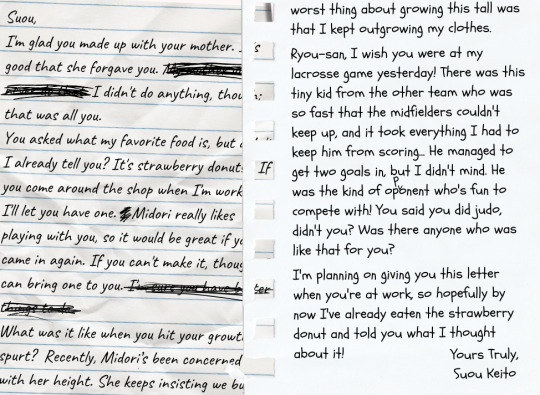 Suou,
I'm glad you made up with your mother.
good that she forgave you.
I didn't do anything, thou
that was all you.
You asked what my favorite food is, but
I already tell you? It's strawberry donut
you come around the shop when I'm work
I'll let you have one. Midori really likes
playing with you, so it would be great if yo
came in again. If you can't make it, thoug
can bring one to you. I'm sure you have better
things to do.
What was it like when you hit your growt
spurt? Recently, Midori's been concerned
with her height. She keeps insisting we bu
worst thing about growing this tall was
that I kept outgrowing my clothes.
Ryou-san, I wish you were at my
lacrosse game yesterday! There was this
tiny kid from the other team who was
so fast that the midfielders couldn't
keep up, and it took everything I had to
keep him from scoring... He managed to
get two goals in, but I didn't mind. He
was the kind of opponent who's fun to
compete with! You said you did judo,
didn't you? Was there anyone who was
like that for you?
I'm planning on giving you this letter
when you're at work, so hopefully by
now I've already eaten the strawberry
donut and told you what I thought
about it!
Yours Truly,
Suou Keito